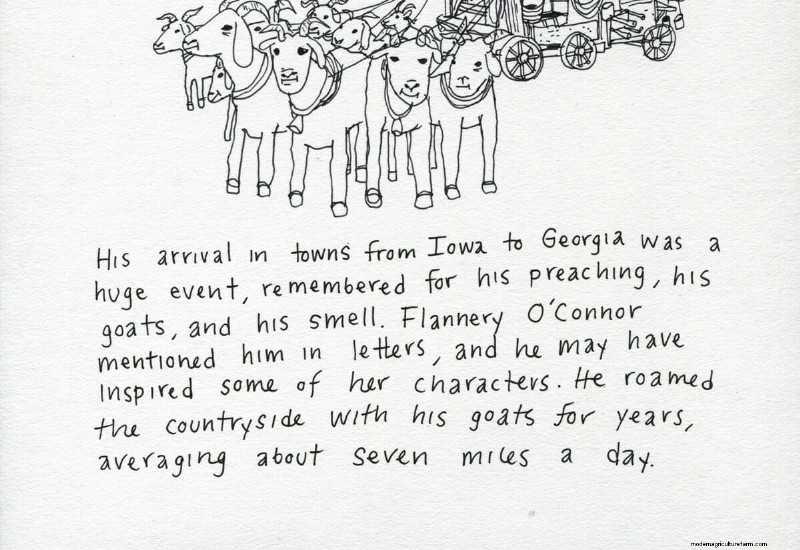 His arrival in towns from Iowa to Georgia was a
huge event, remembered for his preaching, his
goats, and his smell. Flannery O'Connor
mentioned him in letters, and he may have
inspired some of her characters. He roamed
the countryside with his goats for years,
averaging about seven miles a day.
modernagriculturefarm.com